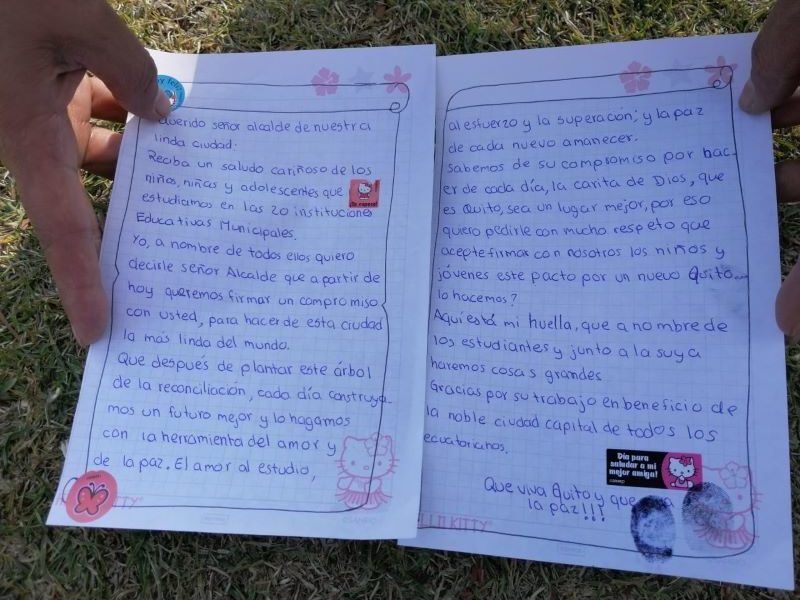 querido señor alcalde de nuestra
linda ciudad:
Reciba un saludo cariñoso de los
niños, niñas y adolescentes que
estudiamos en las 20 instituciones
Educativas Municipales.
Yo, a nombre de todos ellos quiero
decirle señor Alcalde que a partir de
hoy queremos firmar un compromiso
con usted, para hacer de esta ciudad
la más linda del mundo.
Que después de plantar este árbol
de la reconciliación, cada día construya-
mos un futuro mejor y lo hagamos
con la herramienta del amor y
de la paz. El amor al estudio,
al esfuerzo y la superación; y la paz
de cada nuevo amanecer.
Sabemos de su compromiso por hac-
er de cada día, la carita de Dios, que
es Quito, sea un lugar mejor, por eso
quiero pedirle con mucho respeto que
acepte firmar con nosotros los niños y
jóvenes este pacto por un nuevo Quito...
lo hacemos?
Aquí está mi huella, que a nombre de
los estudiantes y junto a la suya
haremos cosas grandes
Gracias por su trabajo en beneficio de
la noble ciudad capital de todos los
ecuatorianos.
Día para
saludar a mi
mejor amiga!
Que viva Quito y que
la paz!!!
KITTY
KITTY